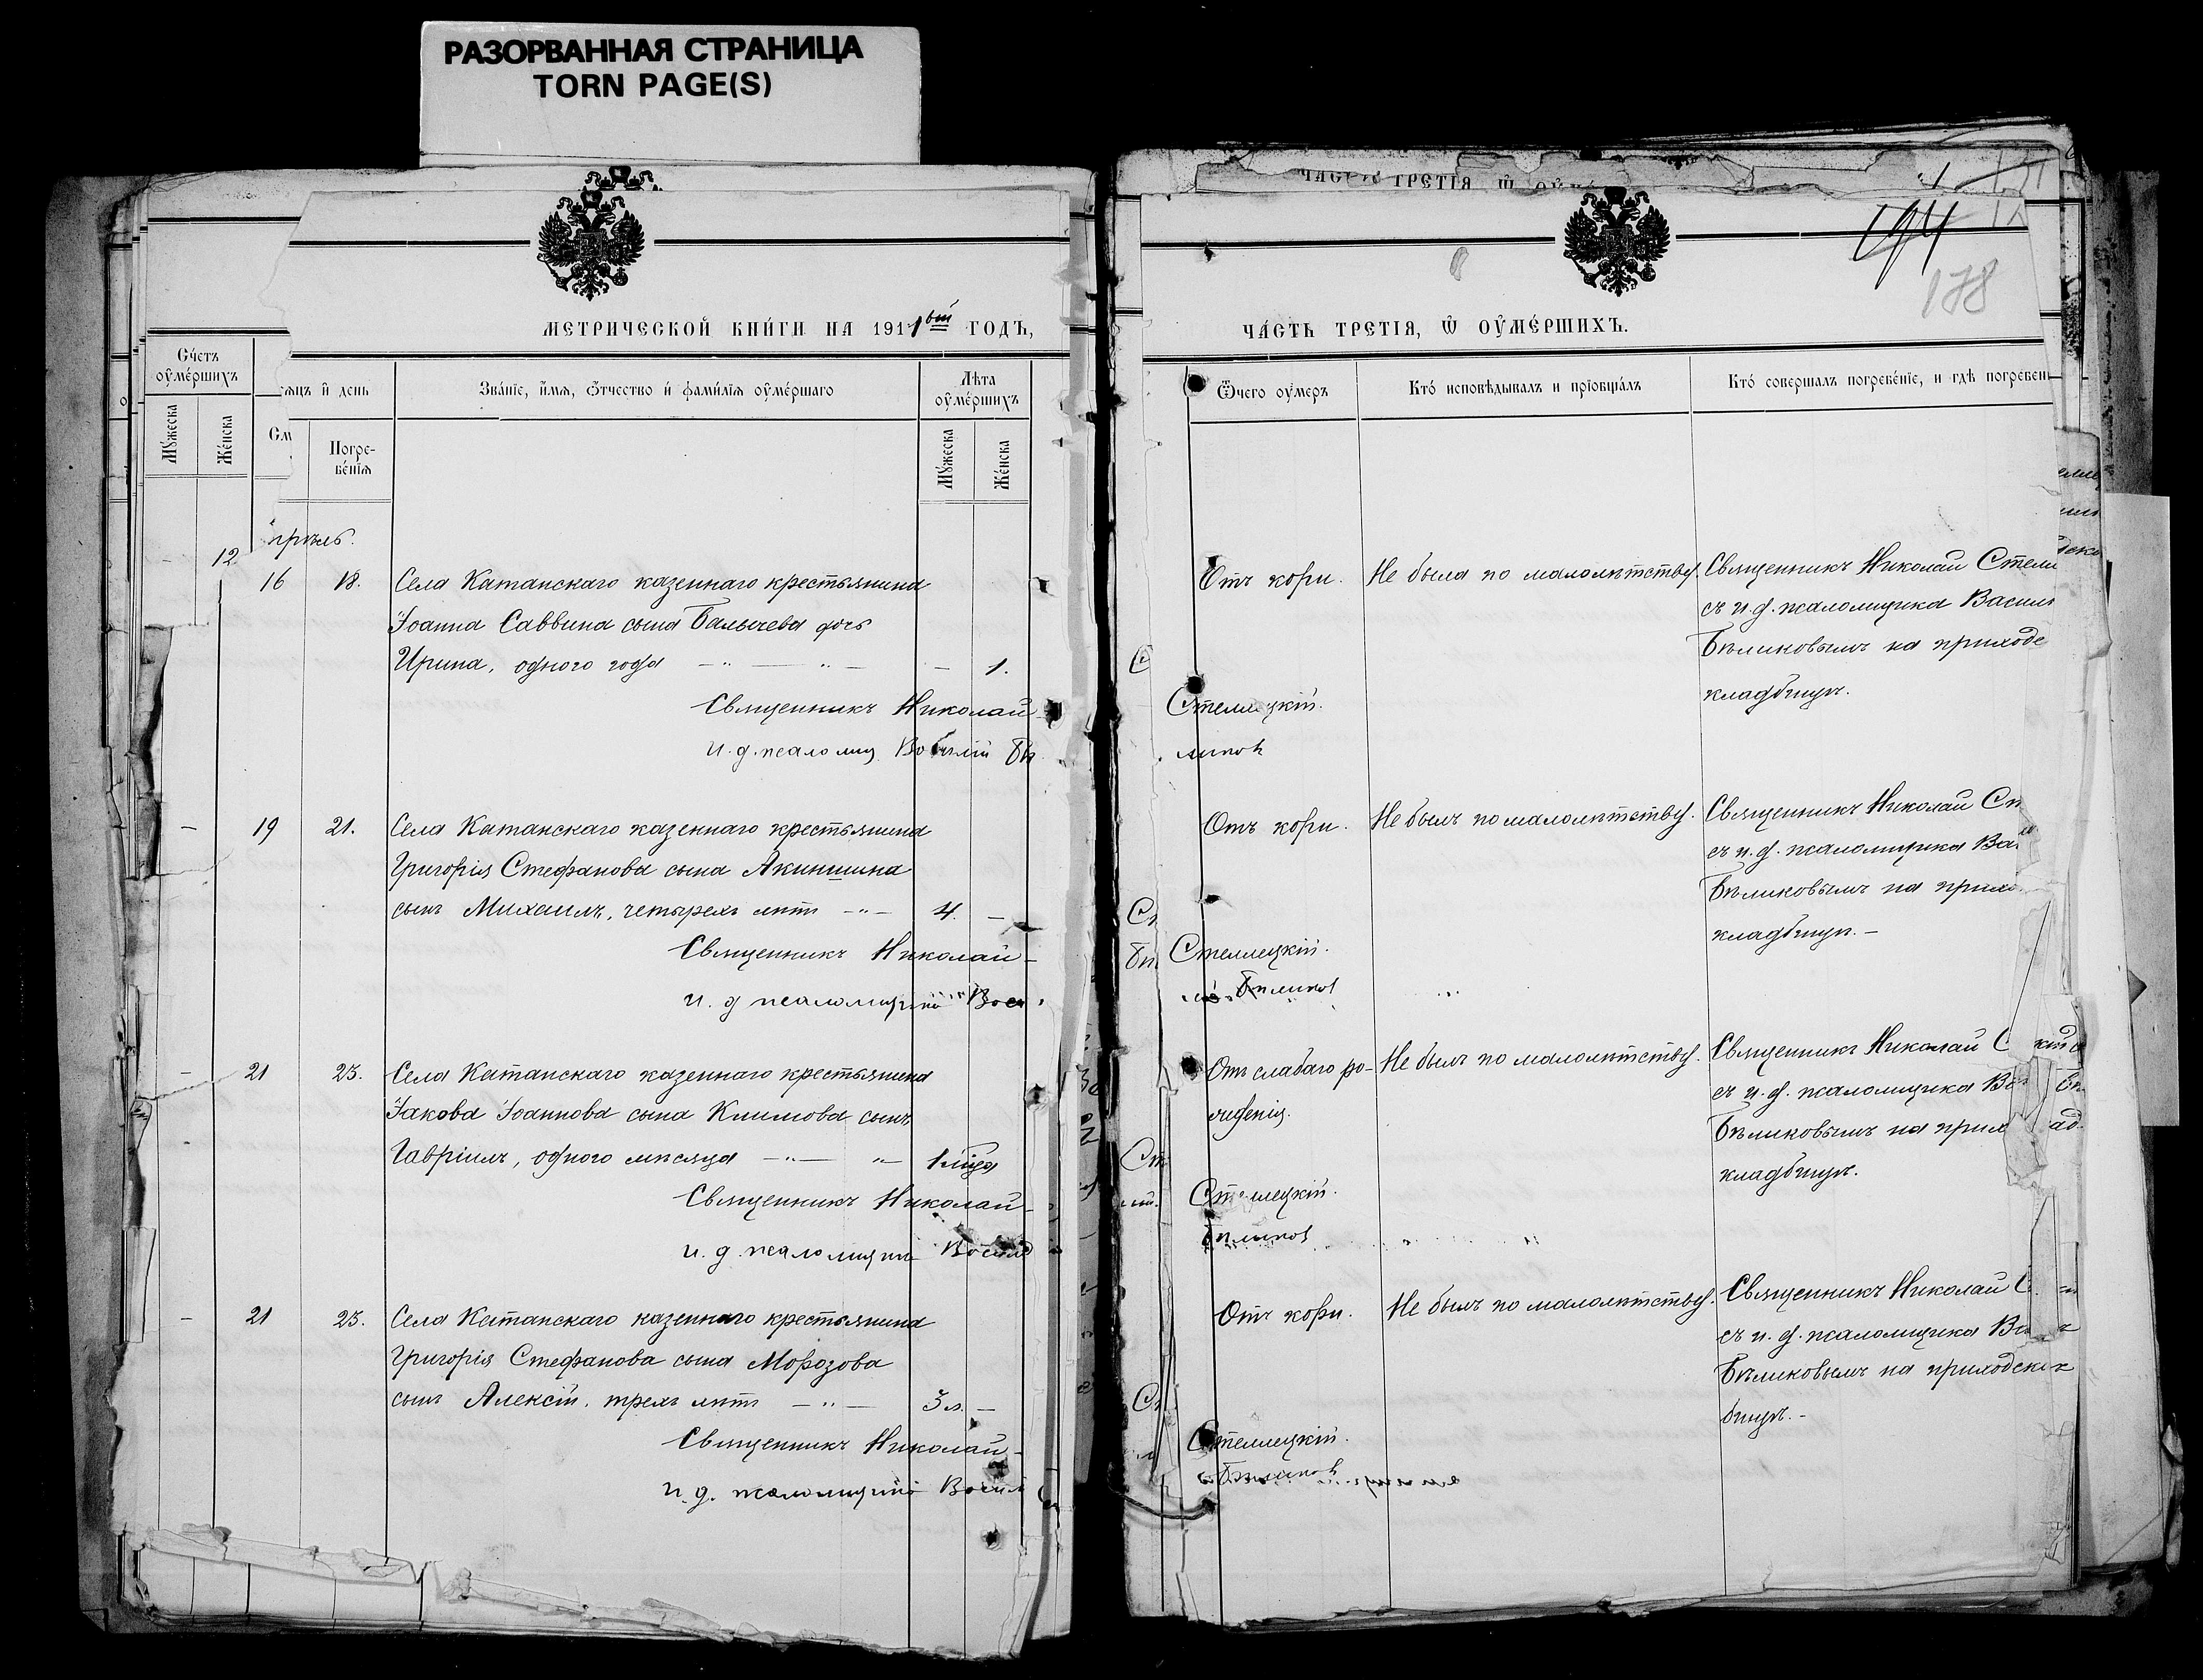 РАЗОРВАННАЯ СТРАНИЦА
TORN PAGE(S)
МЕТРИЧЕСКОЙ КНИГИ НА 1911 ГОДЪ,
Счетъ оумершихъ
Мужеска
Женска
сяцъ и день
Погре-
бенїя
Званїе, имя, ѿчество и фамилїя оумершаго
Лѣта оумершихъ
Мужеска
Женска
12
прѣль.
16 18. Села Катанскаго казеннаго крестьянина
Іоанна Саввина сына Балычева дочь
Ирина, одного года 1.
Священникъ Николай
и. д. псаломщ
19 21. Села Катанскаго казеннаго крестьянина
Григорія Стефанова сына Акиншина
сынъ Михаилъ, четырехъ лѣтъ 4.
Священникъ Николай
и. д. псаломщика
21 23. Села Катанскаго казеннаго крестьянина
Іакова Іоаннова сына Климова сынъ
Гавріилъ, одного мѣсяца
Священникъ Николай
и. д. псаломщика
21 23. Села Катанскаго казеннаго крестьянина
Григорія Стефанова сына Морозова
сынъ Алексій, трехъ лѣтъ 3 л.
Священникъ Николай
и. д. псаломщика
ЧАСТЬ ТРЕТІЯ, Ѿ ОУМЕРШИХЪ.
178
Ѿчего оумеръ
Кто исповѣдывалъ и прїобщалъ
Кто совершалъ погребенїе, и гдѣ погребен
Отъ кори. Не была по малолѣтству. Священникъ Николай Стелл
съ и. д. псаломщика Васил
Бѣликовымъ на приходс
кладбищѣ.
Стеллецкій.
ликов
Отъ кори. Не былъ по малолѣтству. Священникъ Николай Ст
съ и. д. псаломщика Ва
Бѣликовымъ на прихо
кладбищѣ.
Стеллецкій.
Бѣликов
Отъ слабаго ро- Не былъ по малолѣтству. Священникъ Николай С
жденія. съ и. д. псаломщика В
Бѣликовымъ на прих
кладбищѣ.
Стеллецкій.
Бѣликов
Отъ кори. Не былъ по малолѣтству. Священникъ Николай С
съ и. д. псаломщика В
Бѣликовымъ на приходск
бищѣ.
Стеллецкій.
Бѣликов